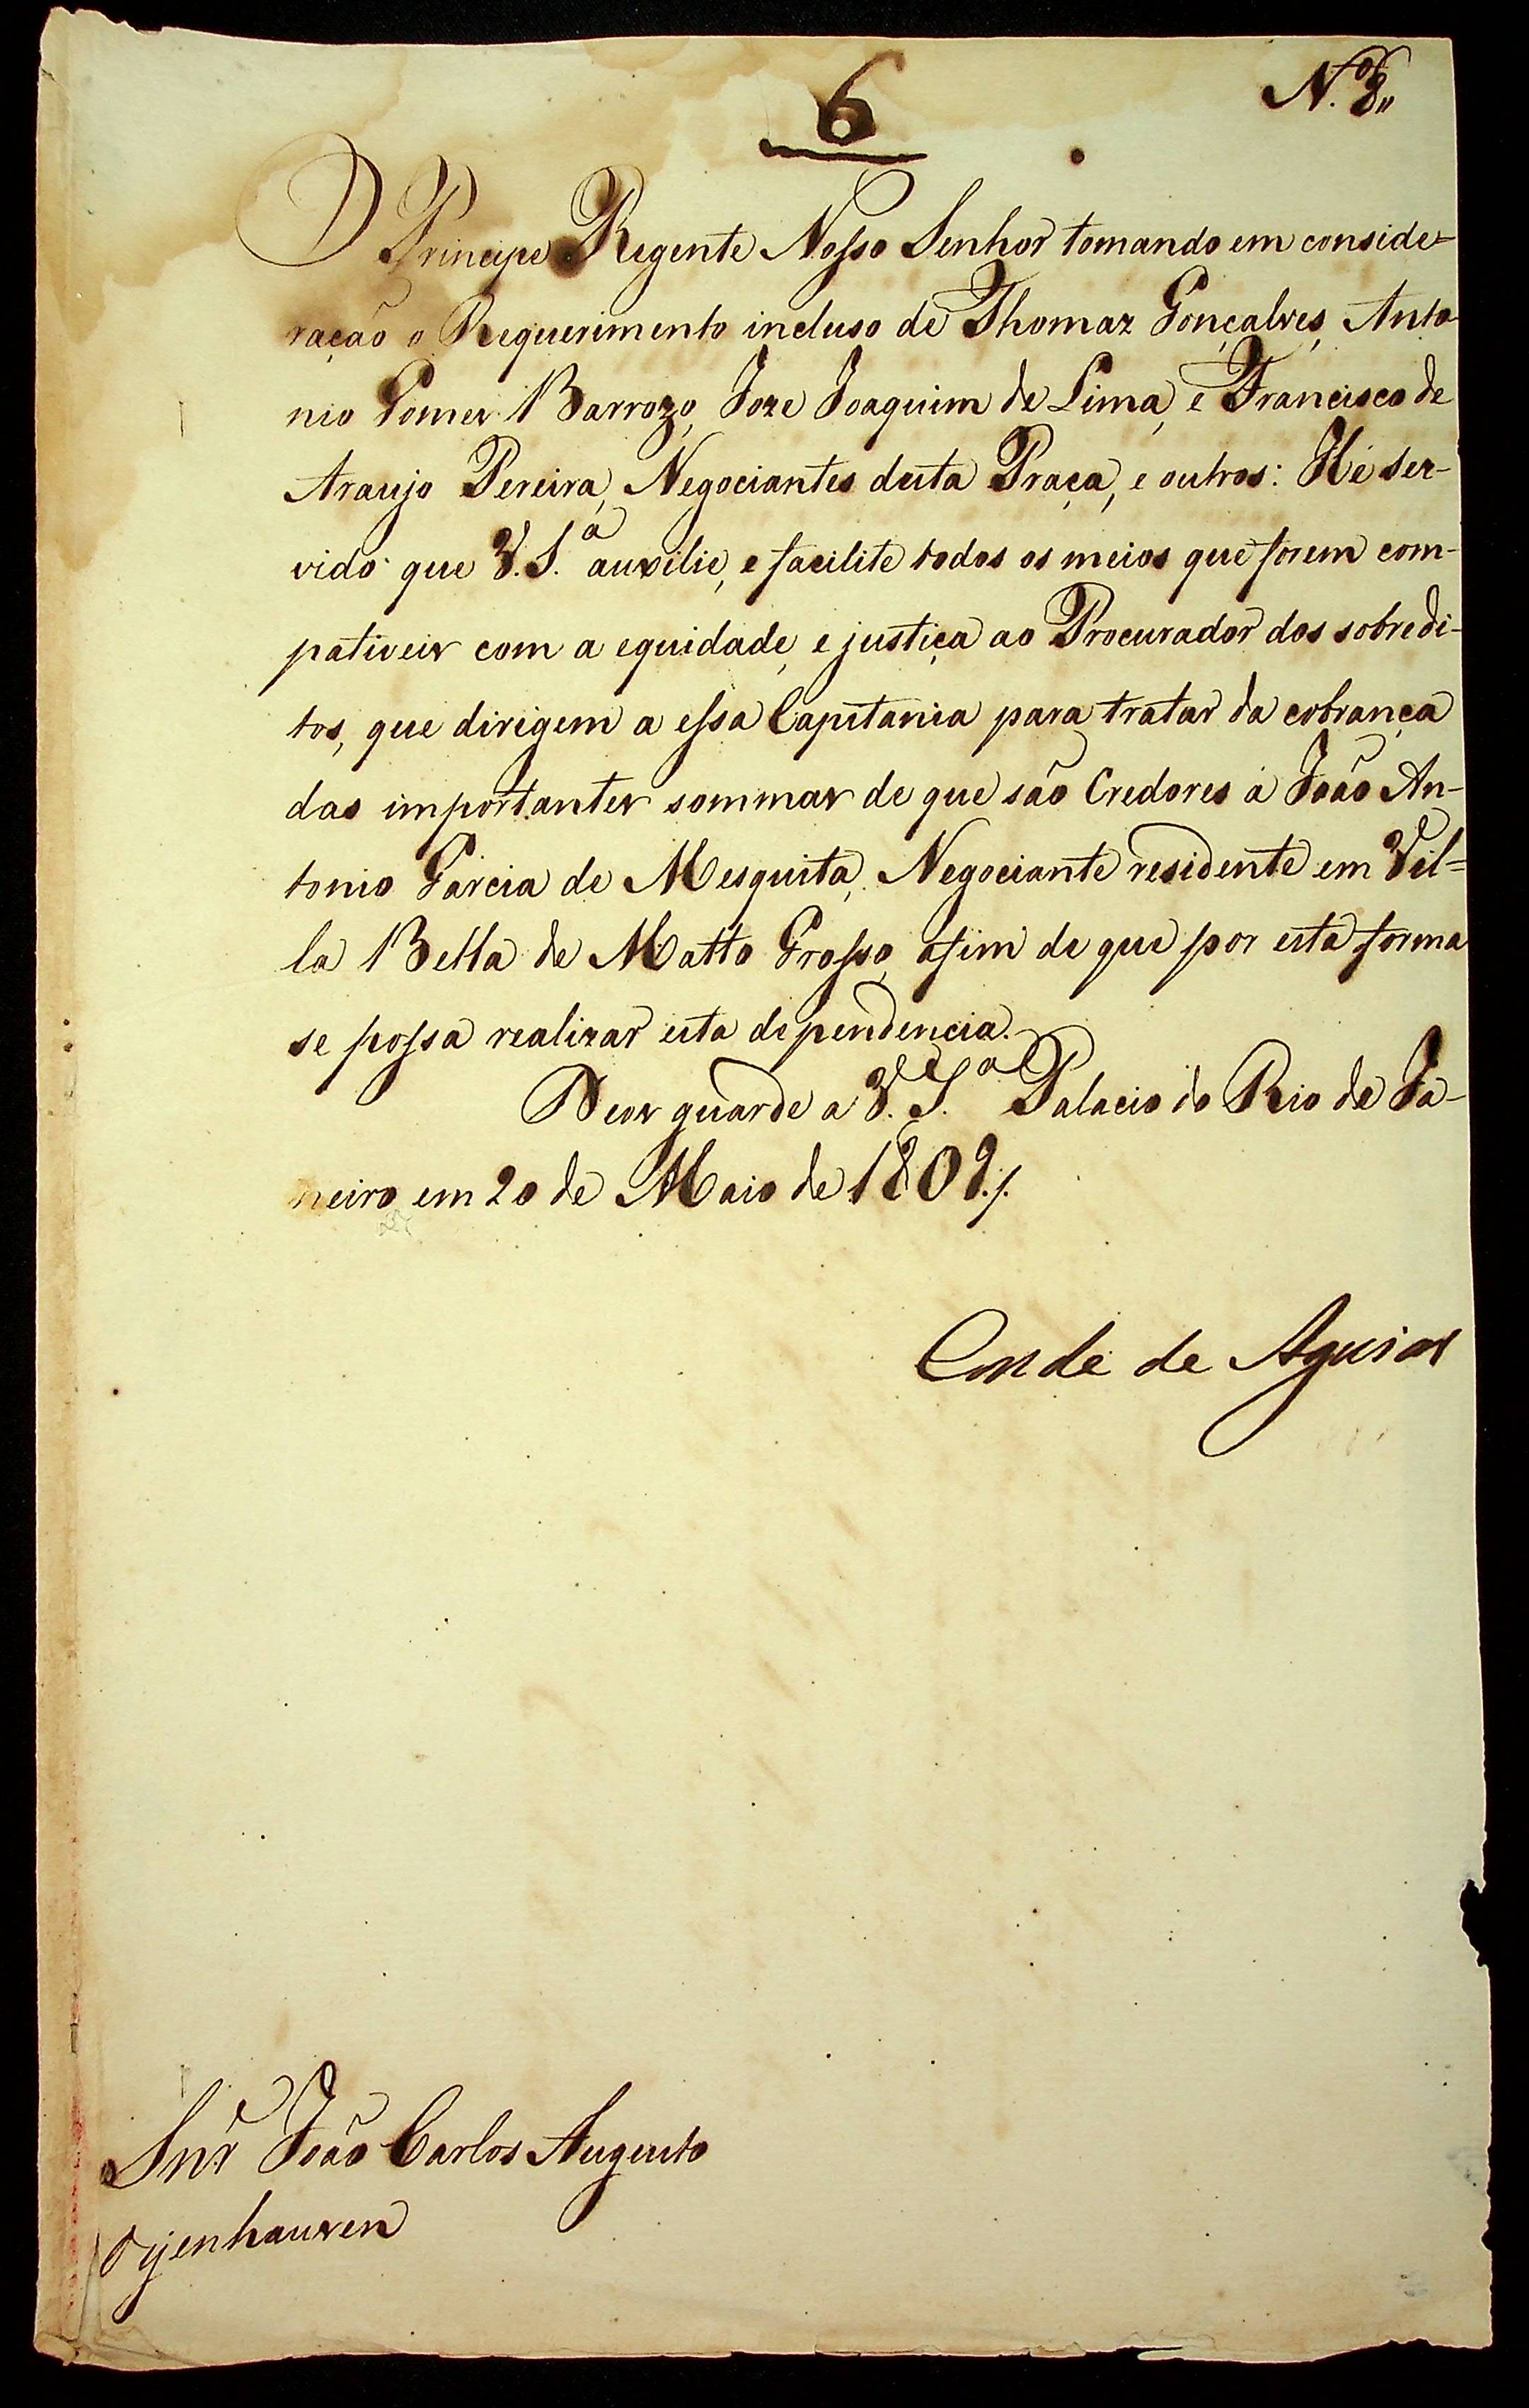 N.º 8,,
6
O Principe Regente Nosso Senhor tomando em conside-
ração o Requerimento incluso de Thomaz Gonçalves, Anto-
nio Gomes Barrozo, Joze Joaquim de Lima, e Francisco de
Araujo Pereira, Negociantes desta Praça, e outros: Hé ser-
vido que V. S.ª auxilie, e facilite todos os meios que forem com-
pativeis com a equidade, e justiça ao Procurador dos sobredi-
tos, que dirigem a essa Capitania para tratar da cobrança
das importantes sommas de que são Credores a João An-
tonio Garcia de Mesquita, Negociante residente em Vil=
la Bella de Matto Grosso, afim de que por esta forma
se possa realizar esta dependencia.
Deos guarde a V. S.ª Palacio do Rio de Ja-
neiro em 20 de Maio de 1809./.
Conde de Aguiar
Snr João Carlos Augusto
Oyenhausen